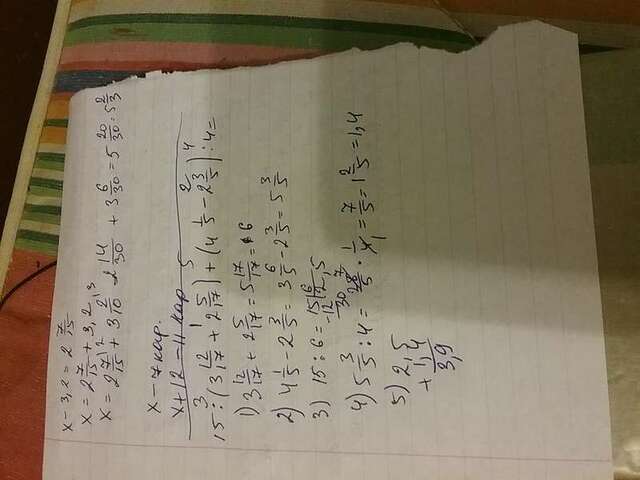 x - 3,2 = 2 7/15
x = 2 7/15 + 3,2
x = 2 7/15 + 3 2/10 2 14/30 + 3 6/30 = 5 20/30 = 5 2/3
x - 7 кар.
x + 12 - 11 кар
15 : (3 12/17 + 2 5/17) + (4 1/5 - 2 3/5) : 4 =
1) 3 12/17 + 2 5/17 = 5 17/17 = 6
2) 4 1/5 - 2 3/5 = 3 6/5 - 2 3/5 = 5 3/5
3) 15 : 6 = 15 | 6
-12 2,5
30
4) 5 3/5 : 4 = 28/5 · 1/4 = 7/5 = 1 2/5 = 1,4
5) 2,5
+ 1,4
3,9